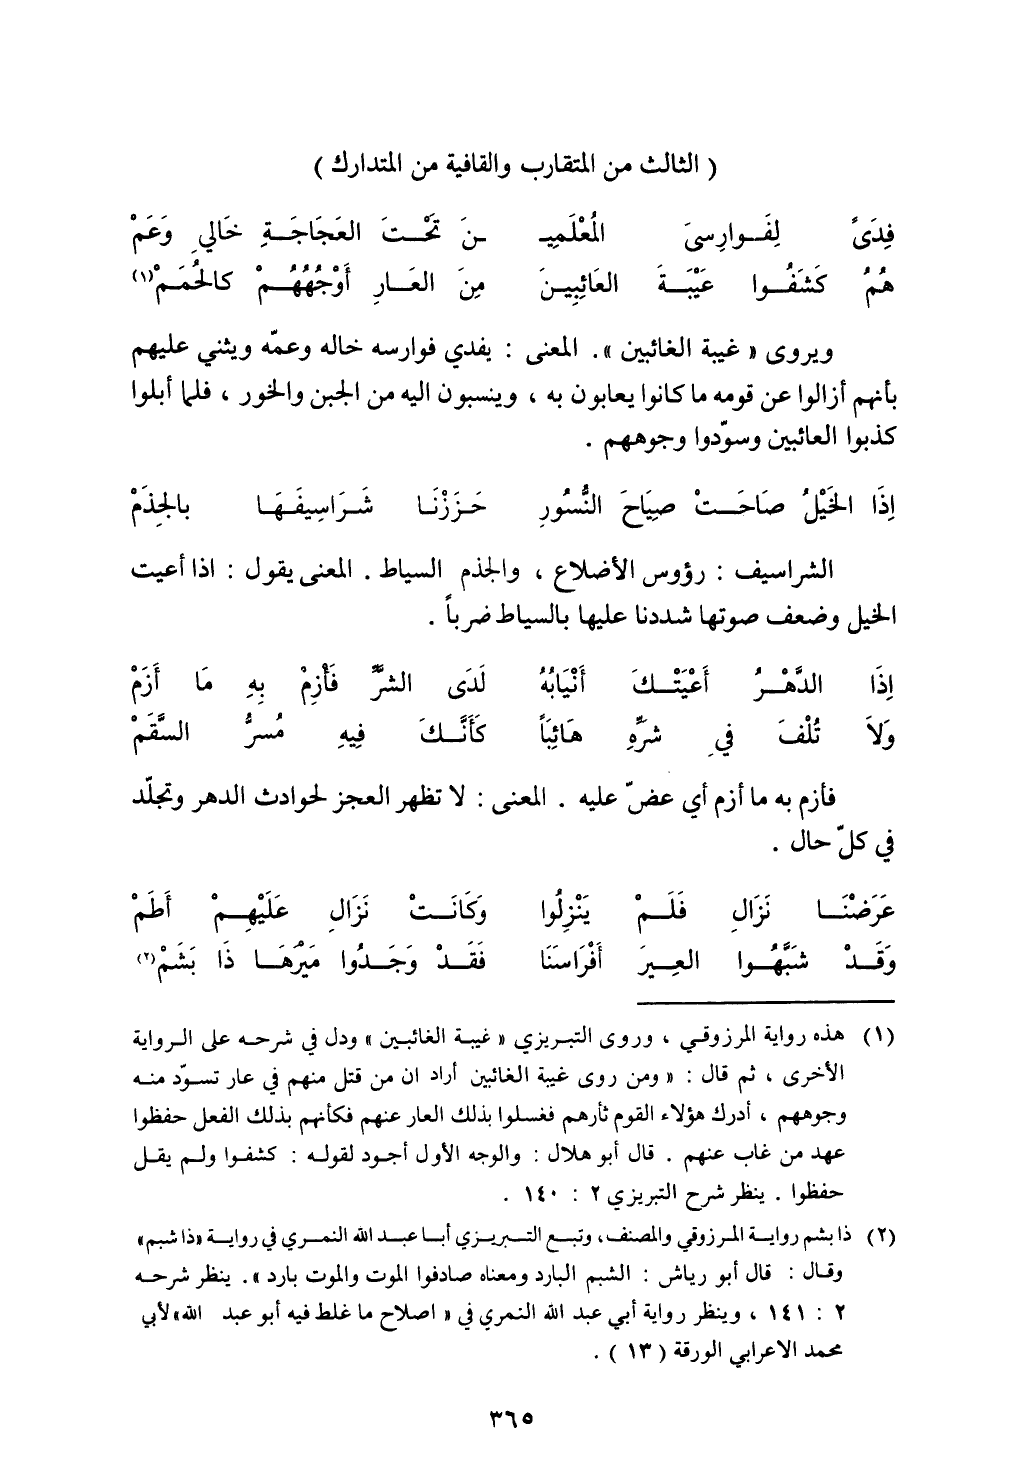 ( الثالث من المتقارب والقافية من المتدارك )
فِدَىً لِفَوارِسيَ المُعْلَمِيـ ـنَ تَحْتَ العَجَاجَةِ خَالي وَعَمْ
هُمُ كَشَفُوا عَيْبَةَ العَائِبِينَ مِنَ العَارِ أَوْجُهُهُمْ كالحُمَمْ(١)
ويروى « غيبة الغائبين ». المعنى : يفدي فوارسه خاله وعمّه ويثني عليهم
بأنهم أزالوا عن قومه ما كانوا يعابون به ، وينسبون اليه من الجبن والخور ، فلما أبلوا
كذبوا العائبين وسوّدوا وجوههم .
إِذَا الخَيْلُ صَاحَتْ صِيَاحَ النُّسُورِ حَزَزْنَا شَرَاسِيفَهَا بالجِذَمْ
الشراسيف : رؤوس الأضلاع ، والجذم السياط . المعنى يقول : اذا أعيت
الخيل وضعف صوتها شددنا عليها بالسياط ضرباً .
إِذَا الدَّهْرُ أَعْيَتْكَ أَنْيَابُهُ لَدَى الشرِّ فَأْزِمْ بِهِ مَا أَزَمْ
وَلاَ تُلْفَ فيِ شرِّهِ هَائِبَاً كَأَنَّكَ فِيهِ مُسرُّ السَّقَمْ
فأزم به ما أزم أي عضّ عليه . المعنى : لا تظهر العجز لحوادث الدهر وتجلّد
في كلّ حال .
عَرَضْنَا نَزَالِ فَلَمْ يَنْزِلُوا وَكَانَتْ نَزَالِ عَلَيْهِمْ أَطَمْ
وَقَدْ شَبَّهُوا العِيرَ أَفْرَاسَنَا فَقَدْ وَجَدُوا مَيْرَهَا ذَا بَشَمْ(٢)
(١) هذه رواية المرزوقي ، وروى التبريزي « غيبة الغائبين » ودل في شرحه على الرواية
الأخرى ، ثم قال : « ومن روى غيبة الغائبين أراد ان من قتل منهم في عار تسوّد منه
وجوههم ، أدرك هؤلاء القوم ثأرهم فغسلوا بذلك العار عنهم فكأنهم بذلك الفعل حفظوا
عهد من غاب عنهم . قال أبو هلال : والوجه الأول أجود لقوله : كشفوا ولم يقل
حفظوا . ينظر شرح التبريزي ٢ : ١٤٠ .
(٢) ذا بشم رواية المرزوقي والمصنف، وتبع التبريزي أبا عبد الله النمري في رواية «ذا شبم»
وقال : قال أبو رياش : الشبم البارد ومعناه صادفوا الموت والموت بارد ». ينظر شرحه
٢ : ١٤١ ، وينظر رواية أبي عبد الله النمري في « اصلاح ما غلط فيه أبو عبد الله» لأبي
محمد الاعرابي الورقة ( ١٣ ) .
٣٦٥